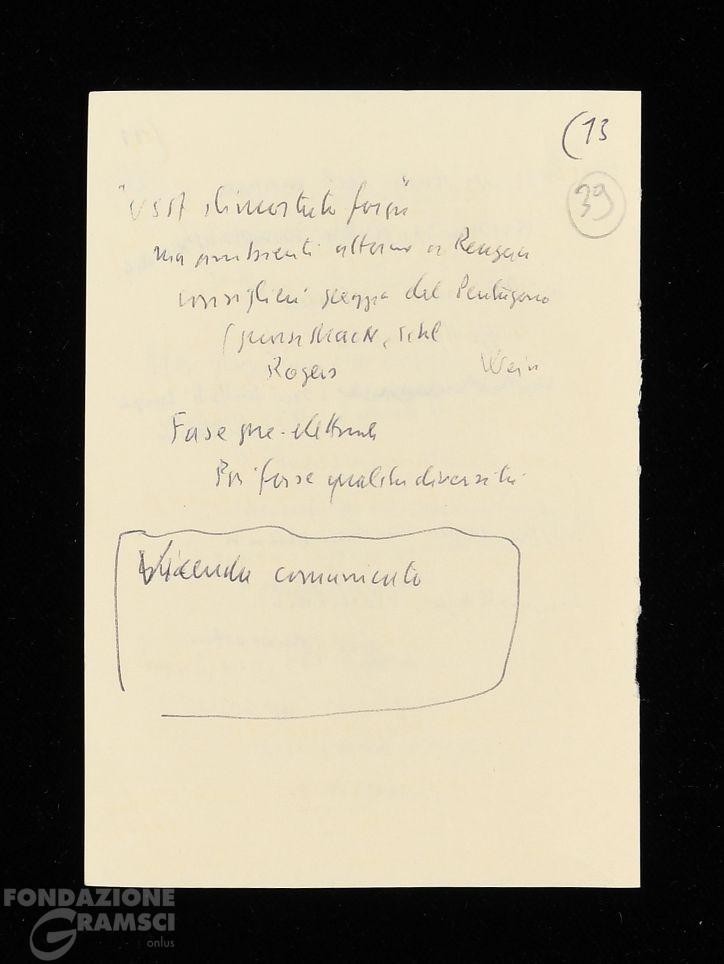 (13
39
"USA dimostrato forza"
ma ambienti attorno a Reagan
consiglieri gruppo del Pentagono
Rogers Wein
Fase pre-elettorale
Poi forse qualche diversità
Vicenda comunicato
FONDAZIONE
GRAMSCI
onlus